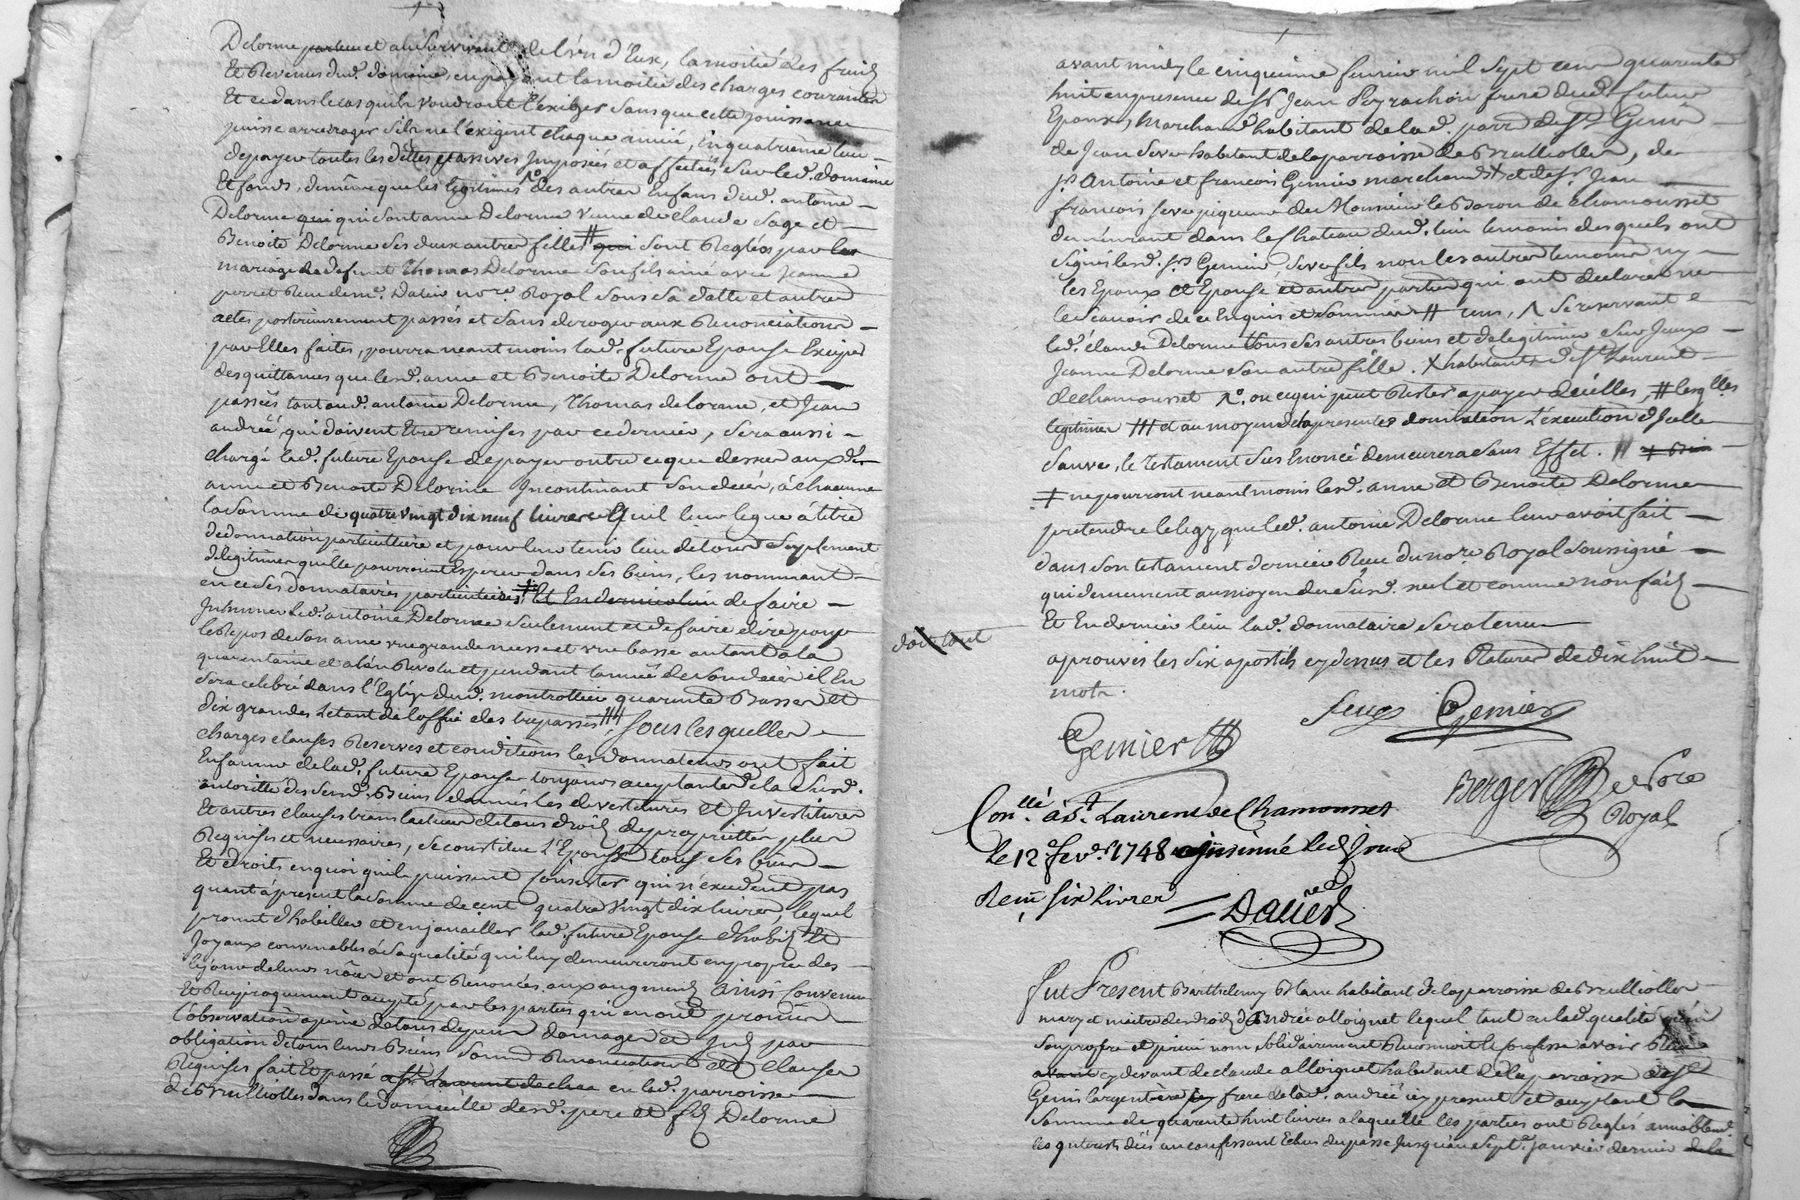 Delorme et au survivant de l'un d'Eux, la moitié des fruits
Et Revenus dud. domaine, en payant la moitié des charges courantes
Et ce dans le cas qu'ils voudront l'éxiger sans que cette jouissance
puisse arrerager s'ils ne l'éxigent chaque année, En quatrieme lieu
de payer toutes les dettes passives Imposées et affectées sur led. domaine
Et fonds, de même que les legitimes des autres Enfans dud. antoine
Delorme qui sont anne Delorme veuve de Claude Sage et
Benoite Delorme ses deux autres filles # qui sont Reglées par le
mariage de defunt Thomas Delorme son fils ainé avec Jeanne
perret Reçu de me. Dalier nore. Royal sous sa datte et autres
actes posterieurement passés et sans deroger aux Renonciations
par Elles faites, pourra neantmoins lad. future Epouse Exciper
des quittances que lesd. anne et Benoite Delorme ont
passées tant aud. antoine Delorme, Thomas delorme, et Jean
andréé, qui doivent Etre remises par ce dernier, sera aussi
chargé lad. future Epouse de payer outre ce que dessus auxd.
anne et Benoite Delorme Incontinant son décés, à chacune
la somme de quatre vingt dix neuf livres qu'il leur legue à titre
de donnation particulliere et pour leur tenir lieu de tout suplement
de legitime qu'elle pourroient Esperer dans ses biens, les nommant
en ce ses donnataires particulieres # Et En dernier lieu de faire
Inhumer led. antoine Delorme seulement et de faire dire pour
le Repos de son ame une grande messe et une basse autant a la
quarentaine et a l'an Revolu et pendant l'année de son décés il En
sera celebré dans l'Eglize dud. montrottier quarente Basses et
dix grandes Letant de l'office des trepassés ### sous lesquelles
charges clauses Reserves et conditions les donnateurs ont fait
En faveur de lad. future Epouse toujours acceptante de la susd.
autorité des susd. Biens donnés les devestitures et Investitures
Et autres clauses translatives de tous droits de proprietté plus
Requises et necessaires, se constitue l'Epouse tous ses biens
Et droits en quoi qu'ils puissent Consister qui n'éxcedent pas
quant à present la somme de cent quatre vingt dix livres, lequel
promet d'habiller et enjoailler lad. future Epouse d'habits et
Joyaux convenables à sa qualité qui luy demeureront en propre des
le jour de leurs nôces et ont Renoncés aux augments ainsi Convenu
Et Reciproquement accepté par les parties qui en ont promis
l'observation à peine de tous depens domages et Its. par
obligation de tous leurs Biens soumd. Renonciations et clauses
Requises fait Et passé en lad. parroisse
de Brulliolles dans le domicille desd. pere et fille Delorme
avant midy le cinquieme fevrier mil sept cent quarente
huit en presence de sr. Jean Peyrachon frere dud. futur
Epoux, Marchand habitant de lad. parr. de St. Genis
de Jean Seve habitant de la parroisse de Brulliolles, de
srs. Antoine et françois Gemier marchands X et de sr. Jean
françois Seve piqueur de Monsieur le Baron de chamousset
demeurant dans le Chateau dud. lieu temoins desquels ont
signés lesd. srs. Gemier, Seve fils non les autres temoins ny
les Epoux et Epouse et autres parties qui ont declarés ne
le scavoir de ce Enquis et sommés
led. claude Delorme tous ses autres biens et de legitime sur Jeux
Jeanne Delorme son autre fille. X habitants de St. Laurent
de chamousset ou ce qui peut Rester a payer d'icelles, # lesqlles
legitimes ### et au moyen de la presente donnation l'execution d'Icelle
sauve, le testament sus Enoncé demeurera sans Effet.
# ne pourront neantmoins lesd. anne et Benoite Delorme
pretendre le legz que led. antoine Delorme leur avoit fait
dans son testament dernier Reçu du nore. Royal soussigné
qui demeurent au moyen du susd. nul et comme non faits
Et En dernier lieu lad. donnataire sera tenue
aprouvés les six apostils cy dessus et les Ratures de dix huit
mots.
Seve Gemier
Gemier
Berger Nore
Royal
Conllé. à St. Laurent de Chamousset
Le 12e fevr. 1748 et insinué led. Jour
Reçu six livres
Dalier
Fut Present Barthelemy Blanc habitant de la parroisse de Brulliolles
mary et maitre des droits d'Andréé alloignet lequel tant en lad. qualité qu'en
son propre et privé nom solidairement Reconnoit et confesse avoir Reçu
cy devant de claude alloignet habitant de la parroisse de St.
Genis largentiere frere de lad. andréé icy present et acceptant la
somme de quarente huit livres a laquelle les parties ont Reglés amiablemt.
les interests dus au confessant Echus du passé jusqu'au sept. janvier dernier de la